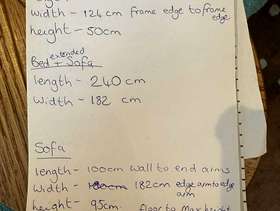 width - 124cm frame edge to frame
edge
height - 50cm
extended
Bed + Sofa
length - 240 cm
width - 182 cm
Sofa
length - 100cm wall to end arms
width - 182cm edge arm to edge
arm
height - 95cm floor to max height